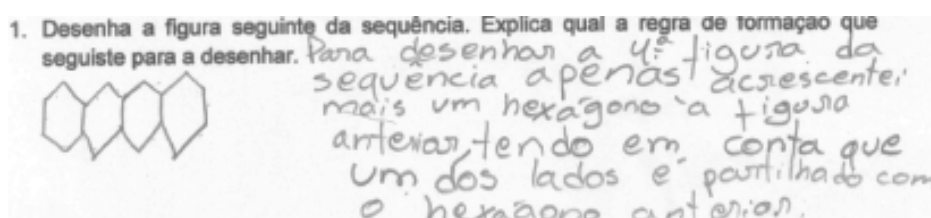 1. Desenha a figura seguinte da sequência. Explica qual a regra de formação que
seguiste para a desenhar. Para desenhar a 4ª figura da
sequência apenas acrescentei
mais um hexágono à figura
anterior, tendo em conta que
um dos lados é partilhado com
o hexágono anterior.